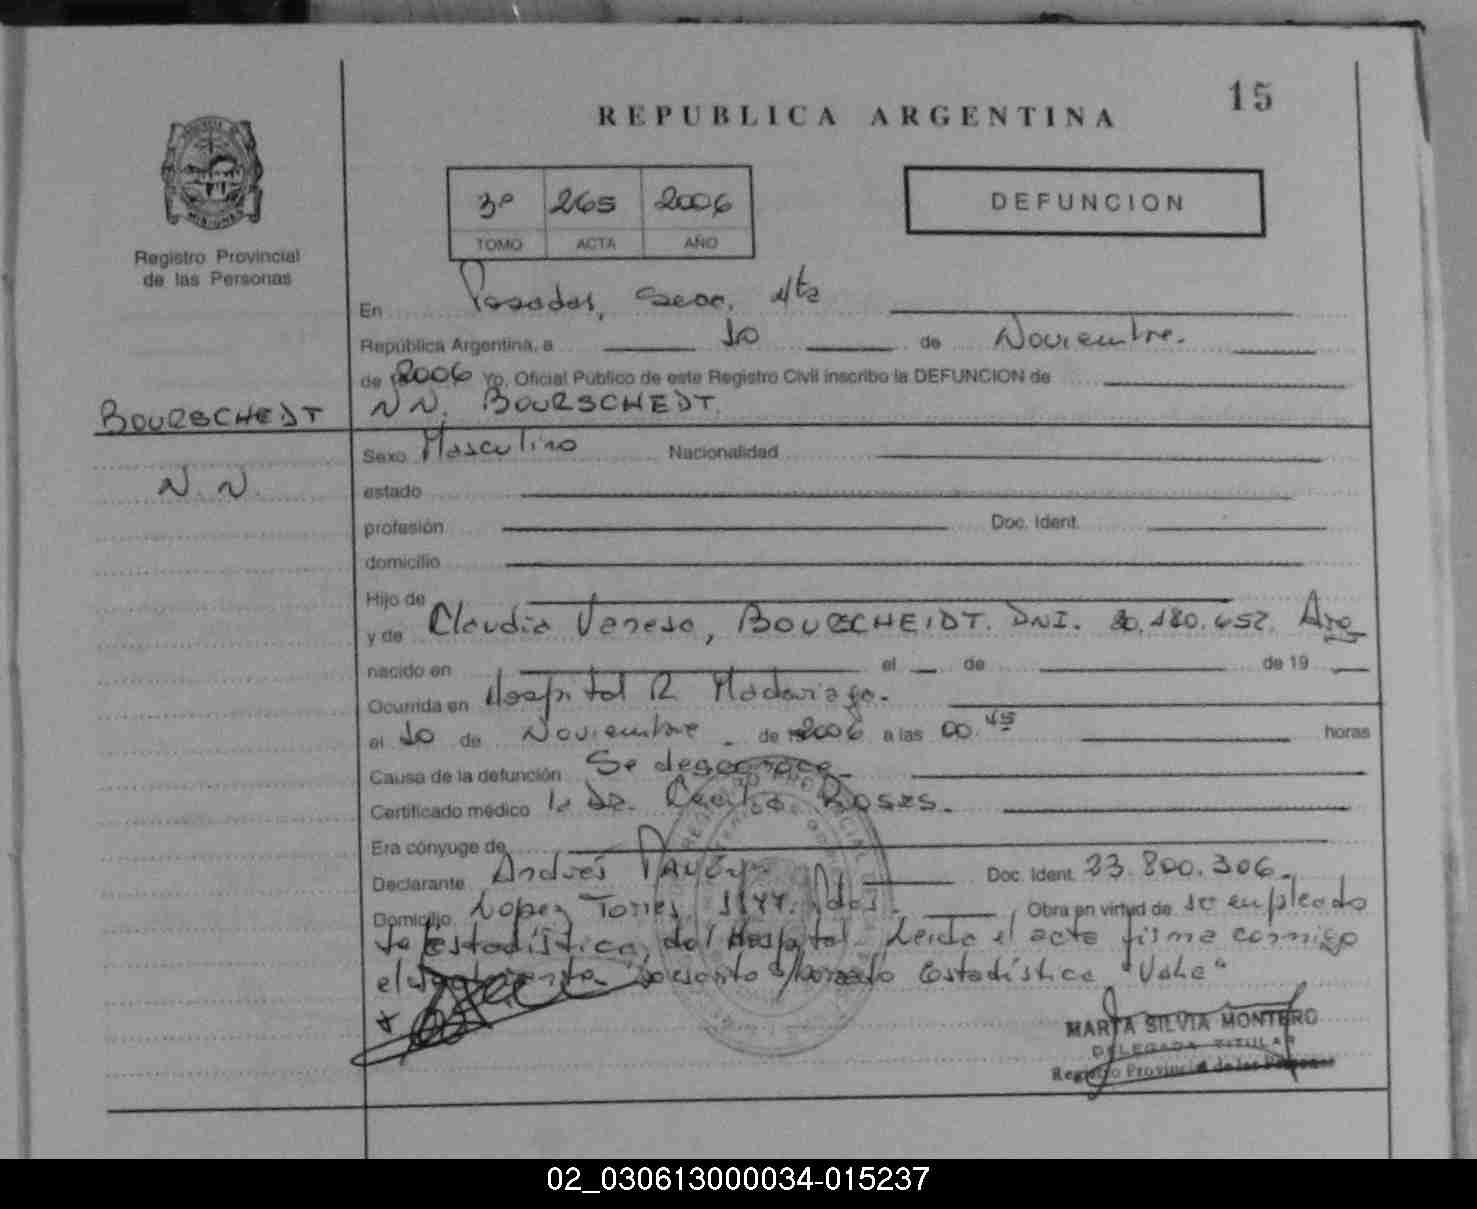 15
REPUBLICA ARGENTINA
3º 265 2006
TOMO ACTA AÑO
DEFUNCION
Registro Provincial
de las Personas
En Posadas, Secc. 4ta
República Argentina, a 10 de Noviembre.
de 2006 Yo, Oficial Público de este Registro Civil inscribo la DEFUNCION de
BOURSCHEDT NN. BOURSCHEDT.
Sexo Masculino Nacionalidad
N.N. estado
profesión Doc. Ident.
domicilio
Hijo de
y de Claudia Vanesa, BOURSCHEIDT. DNI. 30.180.652. Arg
nacido en el de de 19
Ocurrida en Hospital R. Madariaga.
el 10 de Noviembre de 2006 a las 00.45 horas
Causa de la defunción Se desconoce
Certificado médico la Dr. Cecilia
Era cónyuge de
Declarante Andrés Doc. Ident. 23.800.306.
Domicilio Lopez Torres. 1177. Pdas. Obra en virtud de ser empleado
de estadística, del Hospital. Leída el acta firma conmigo
el Estadística "Vale"
MARTA SILVIA MONTERO
DELEGADA TITULAR
Registro Provincial de las Personas
02_030613000034-015237